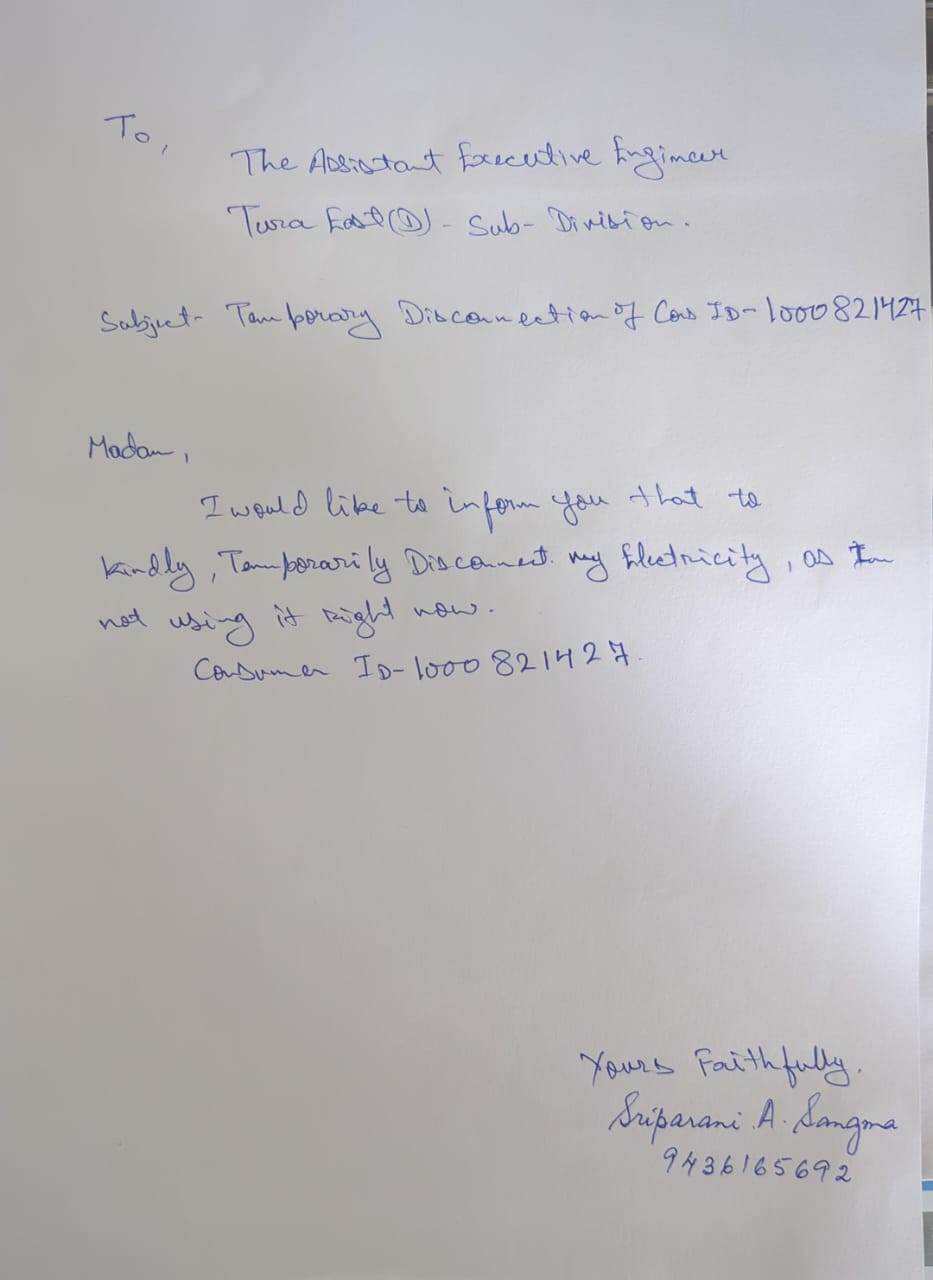 To,
The Assistant Executive Engineer
Tura East (D) - Sub- Division.
Subject- Tamporary Disconnection of Cons ID- 1000821427
Madam,
I would like to inform you that to
kindly, Tamporarily Disconnect. my Electricity, as Im
not using it right now.
Consumer ID- 1000821427.
Yours Faithfully.
Sriparani A. Sangma
9436165692